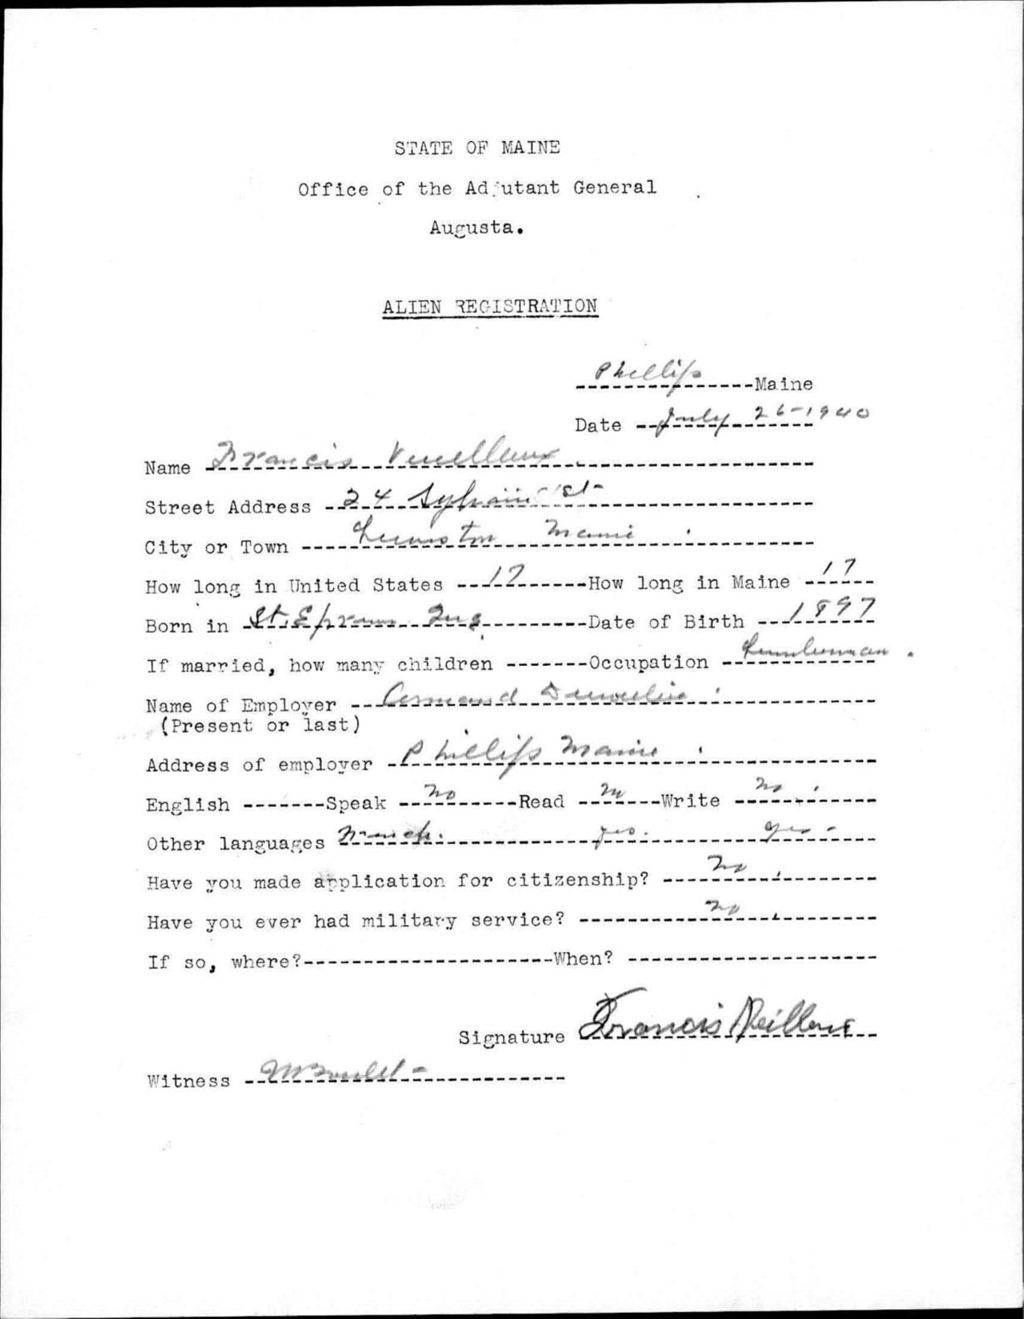 STATE OF MAINE
Office of the Adjutant General
Augusta.
ALIEN REGISTRATION
Phillips Maine
Date July 26-1940
Name Francis
Street Address 24 St
City or Town Lewiston Maine
How long in United States 17 How long in Maine 17
Born in St. Date of Birth 1897
If married, how many children Occupation Lumberman.
Name of Employer
(Present or last)
Address of employer Phillips Maine
English Speak No Read No Write No.
Other languages French. yes. yes -
Have you made application for citizenship? No
Have you ever had military service? no
If so, where? When?
Signature Francis
Witness